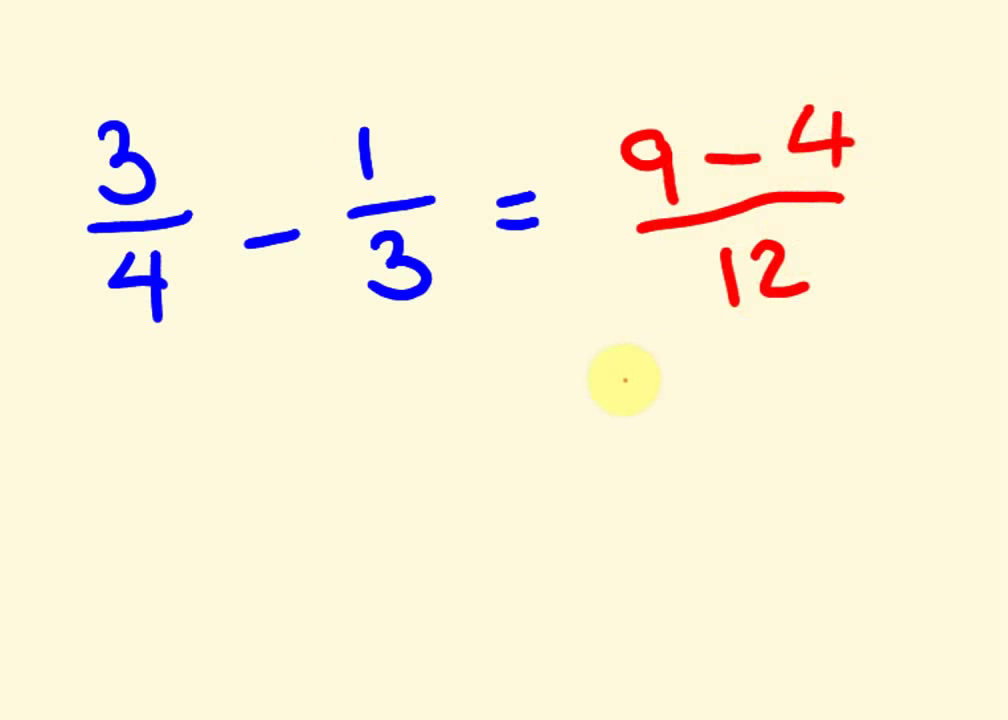 3/4 - 1/3 = (9 - 4)/12